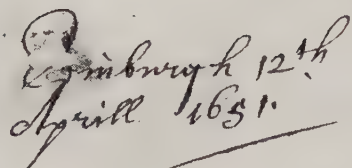 Edinburgh 12th
Aprill 1651.